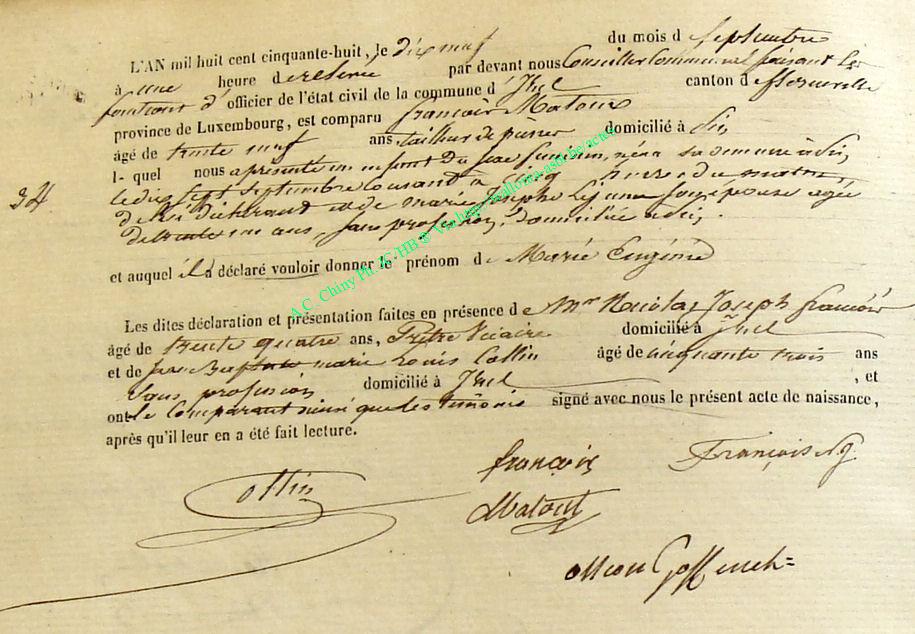 L'AN mil huit cent cinquante-huit, le dix neuf du mois d e Septembre
à une heure d e relevée par devant nous Conseiller Communal faisant les
fonctions d' officier de l'état civil de la commune d' Jzel canton d e Florenville
province de Luxembourg, est comparu françois Matout
âgé de trente neuf ans, tailleur de pierre domicilié à
l- quel nous a présenté un enfant du sexe féminin, née en sa demeure à
le dix sept septembre courant à cinq heures du matin,
de lui déclarant et de marie Josephe Lejeune son épouse agée
de trente un ans, sans profession, domiciliée
34
et auquel il a déclaré vouloir donner le prénom d e Marie Eugénie
Les dites déclaration et présentation faites en présence d e Mr Nicolas Joseph françois
âgé de trente quatre ans, Prêtre Vicaire domicilié à Jzel
et de Jean Baptiste marie Louis Collin âgé de cinquante trois ans
sans profession domicilié à Jzel , et
ont le Comparant ainsi que les témoins signé avec nous le présent acte de naissance,
après qu'il leur en a été fait lecture.
françois
François N J
Collin
Matout
A.C. Chiny Ph. JC/HB ® Visa